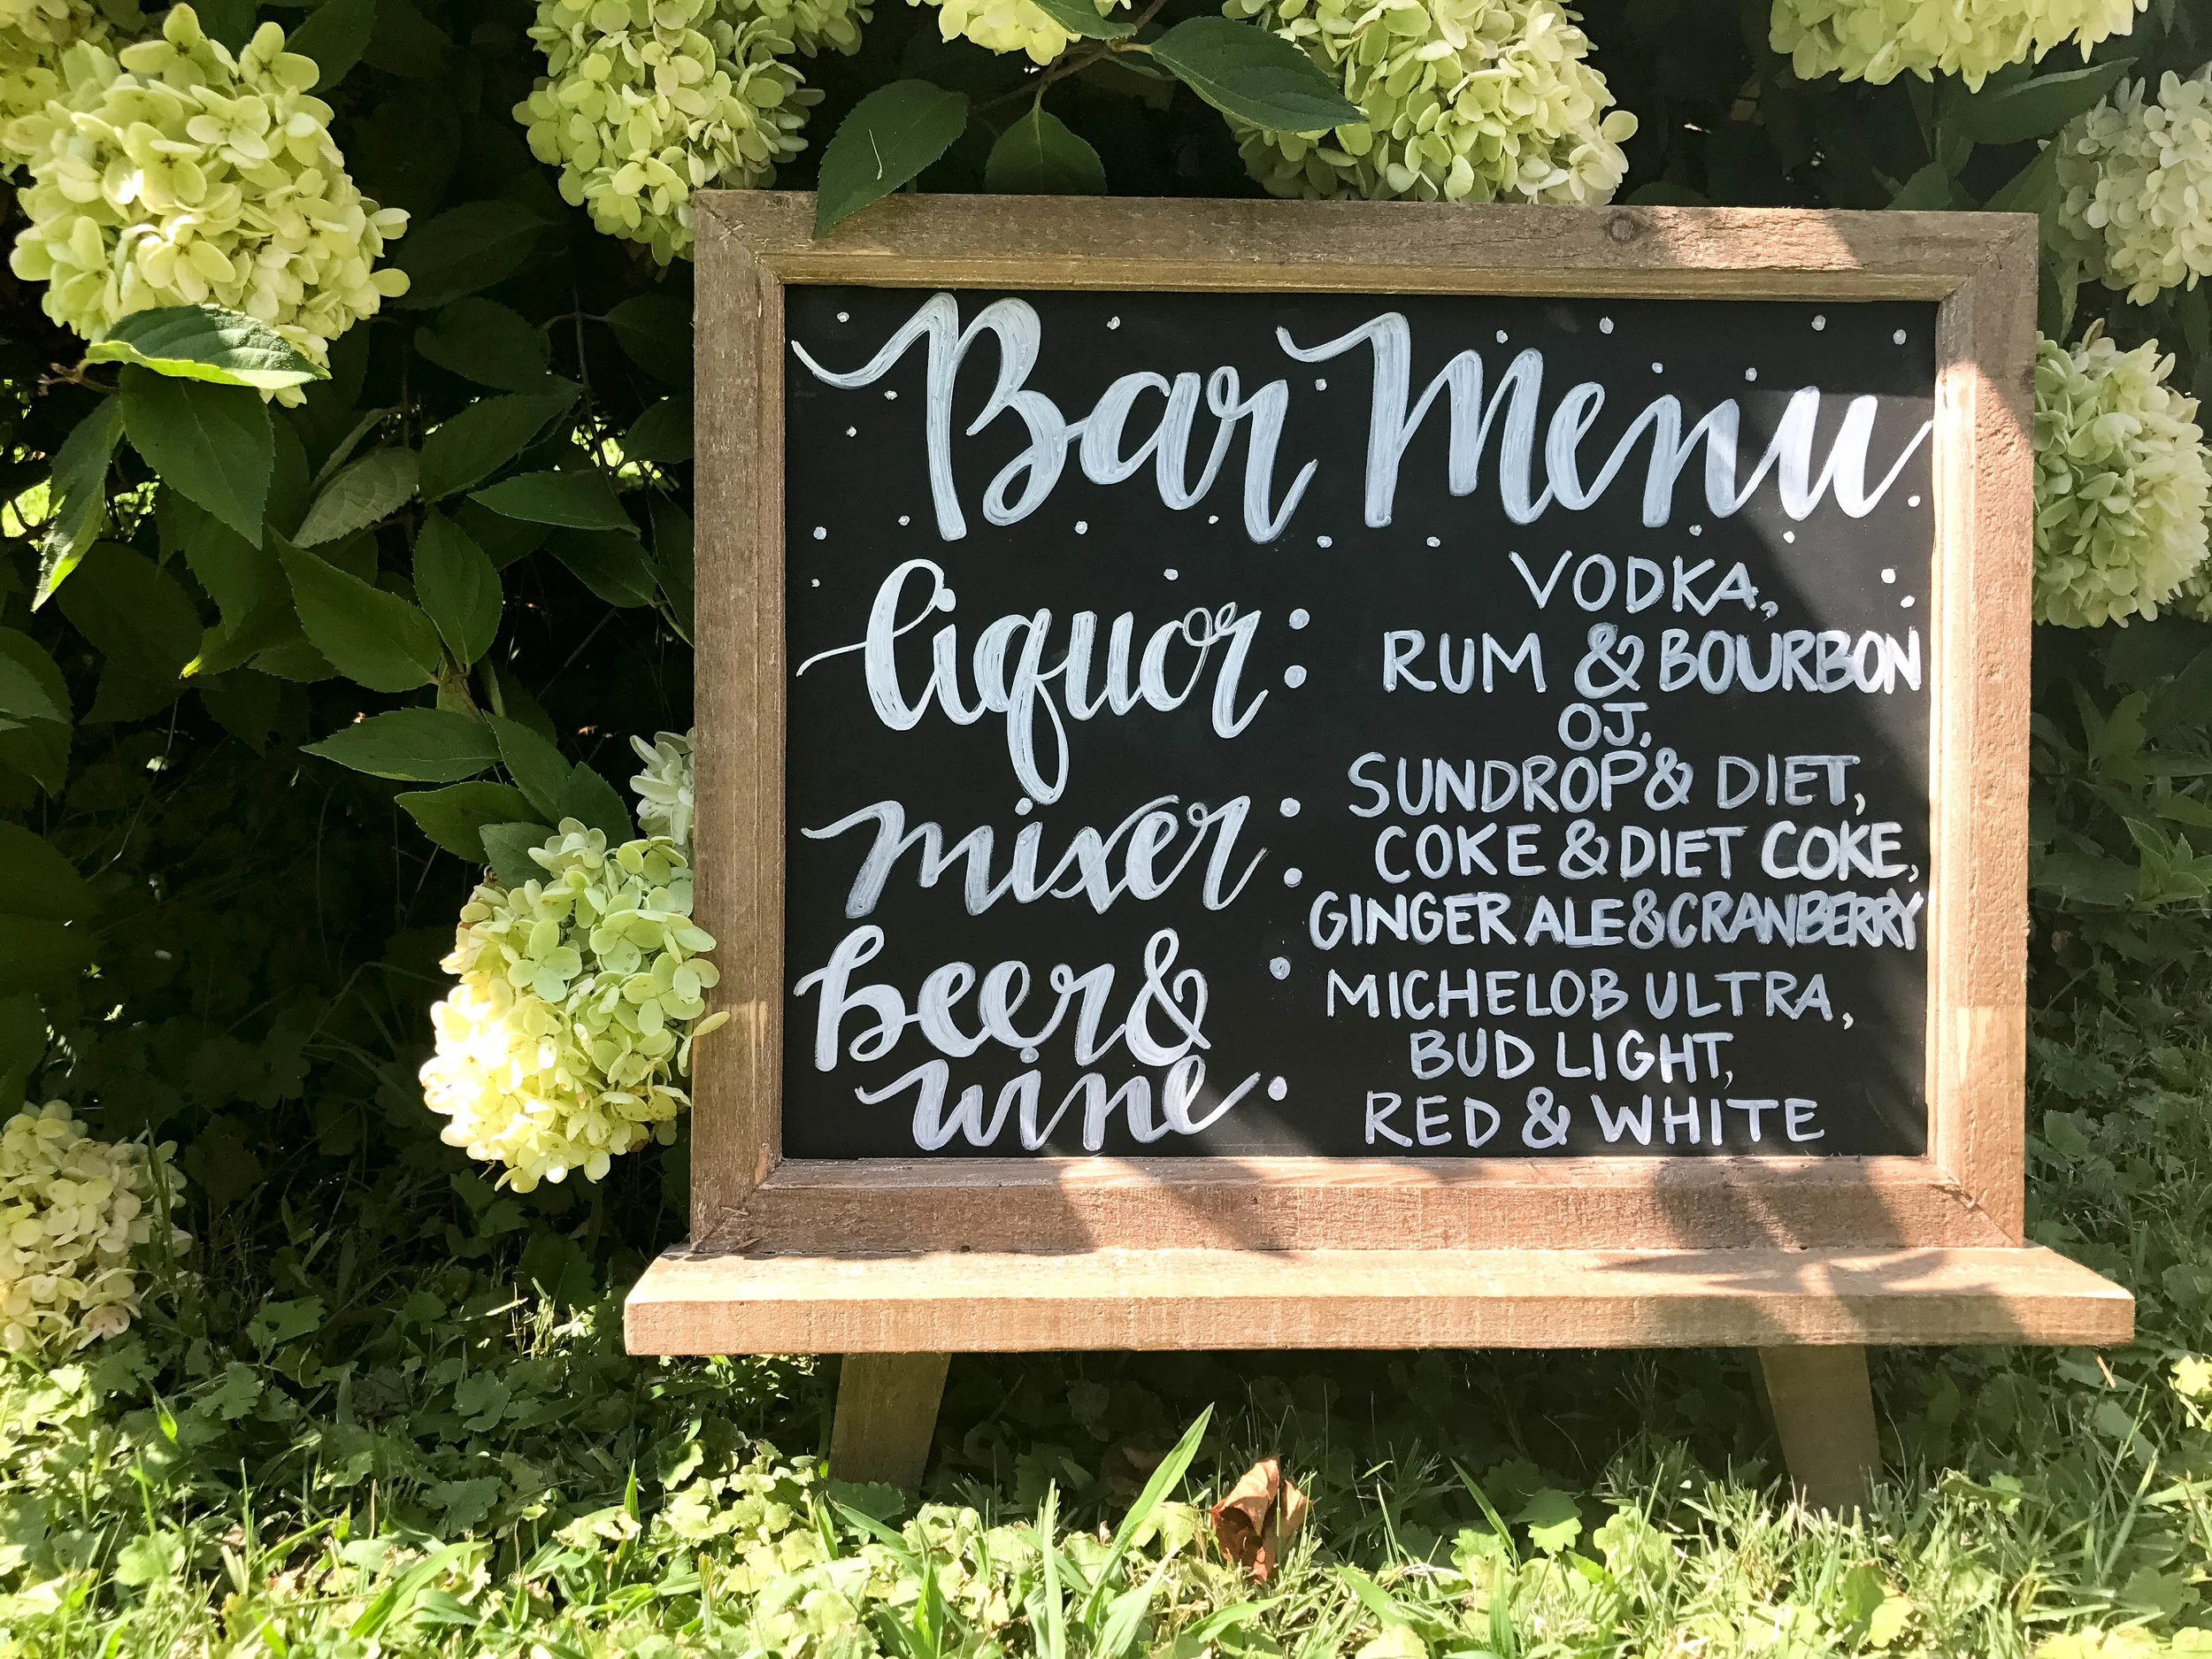 Bar Menu
liquor: VODKA,
RUM & BOURBON
OJ,
mixer: SUNDROP & DIET,
COKE & DIET COKE,
GINGER ALE & CRANBERRY
beer &
wine: MICHELOB ULTRA,
BUD LIGHT,
RED & WHITE